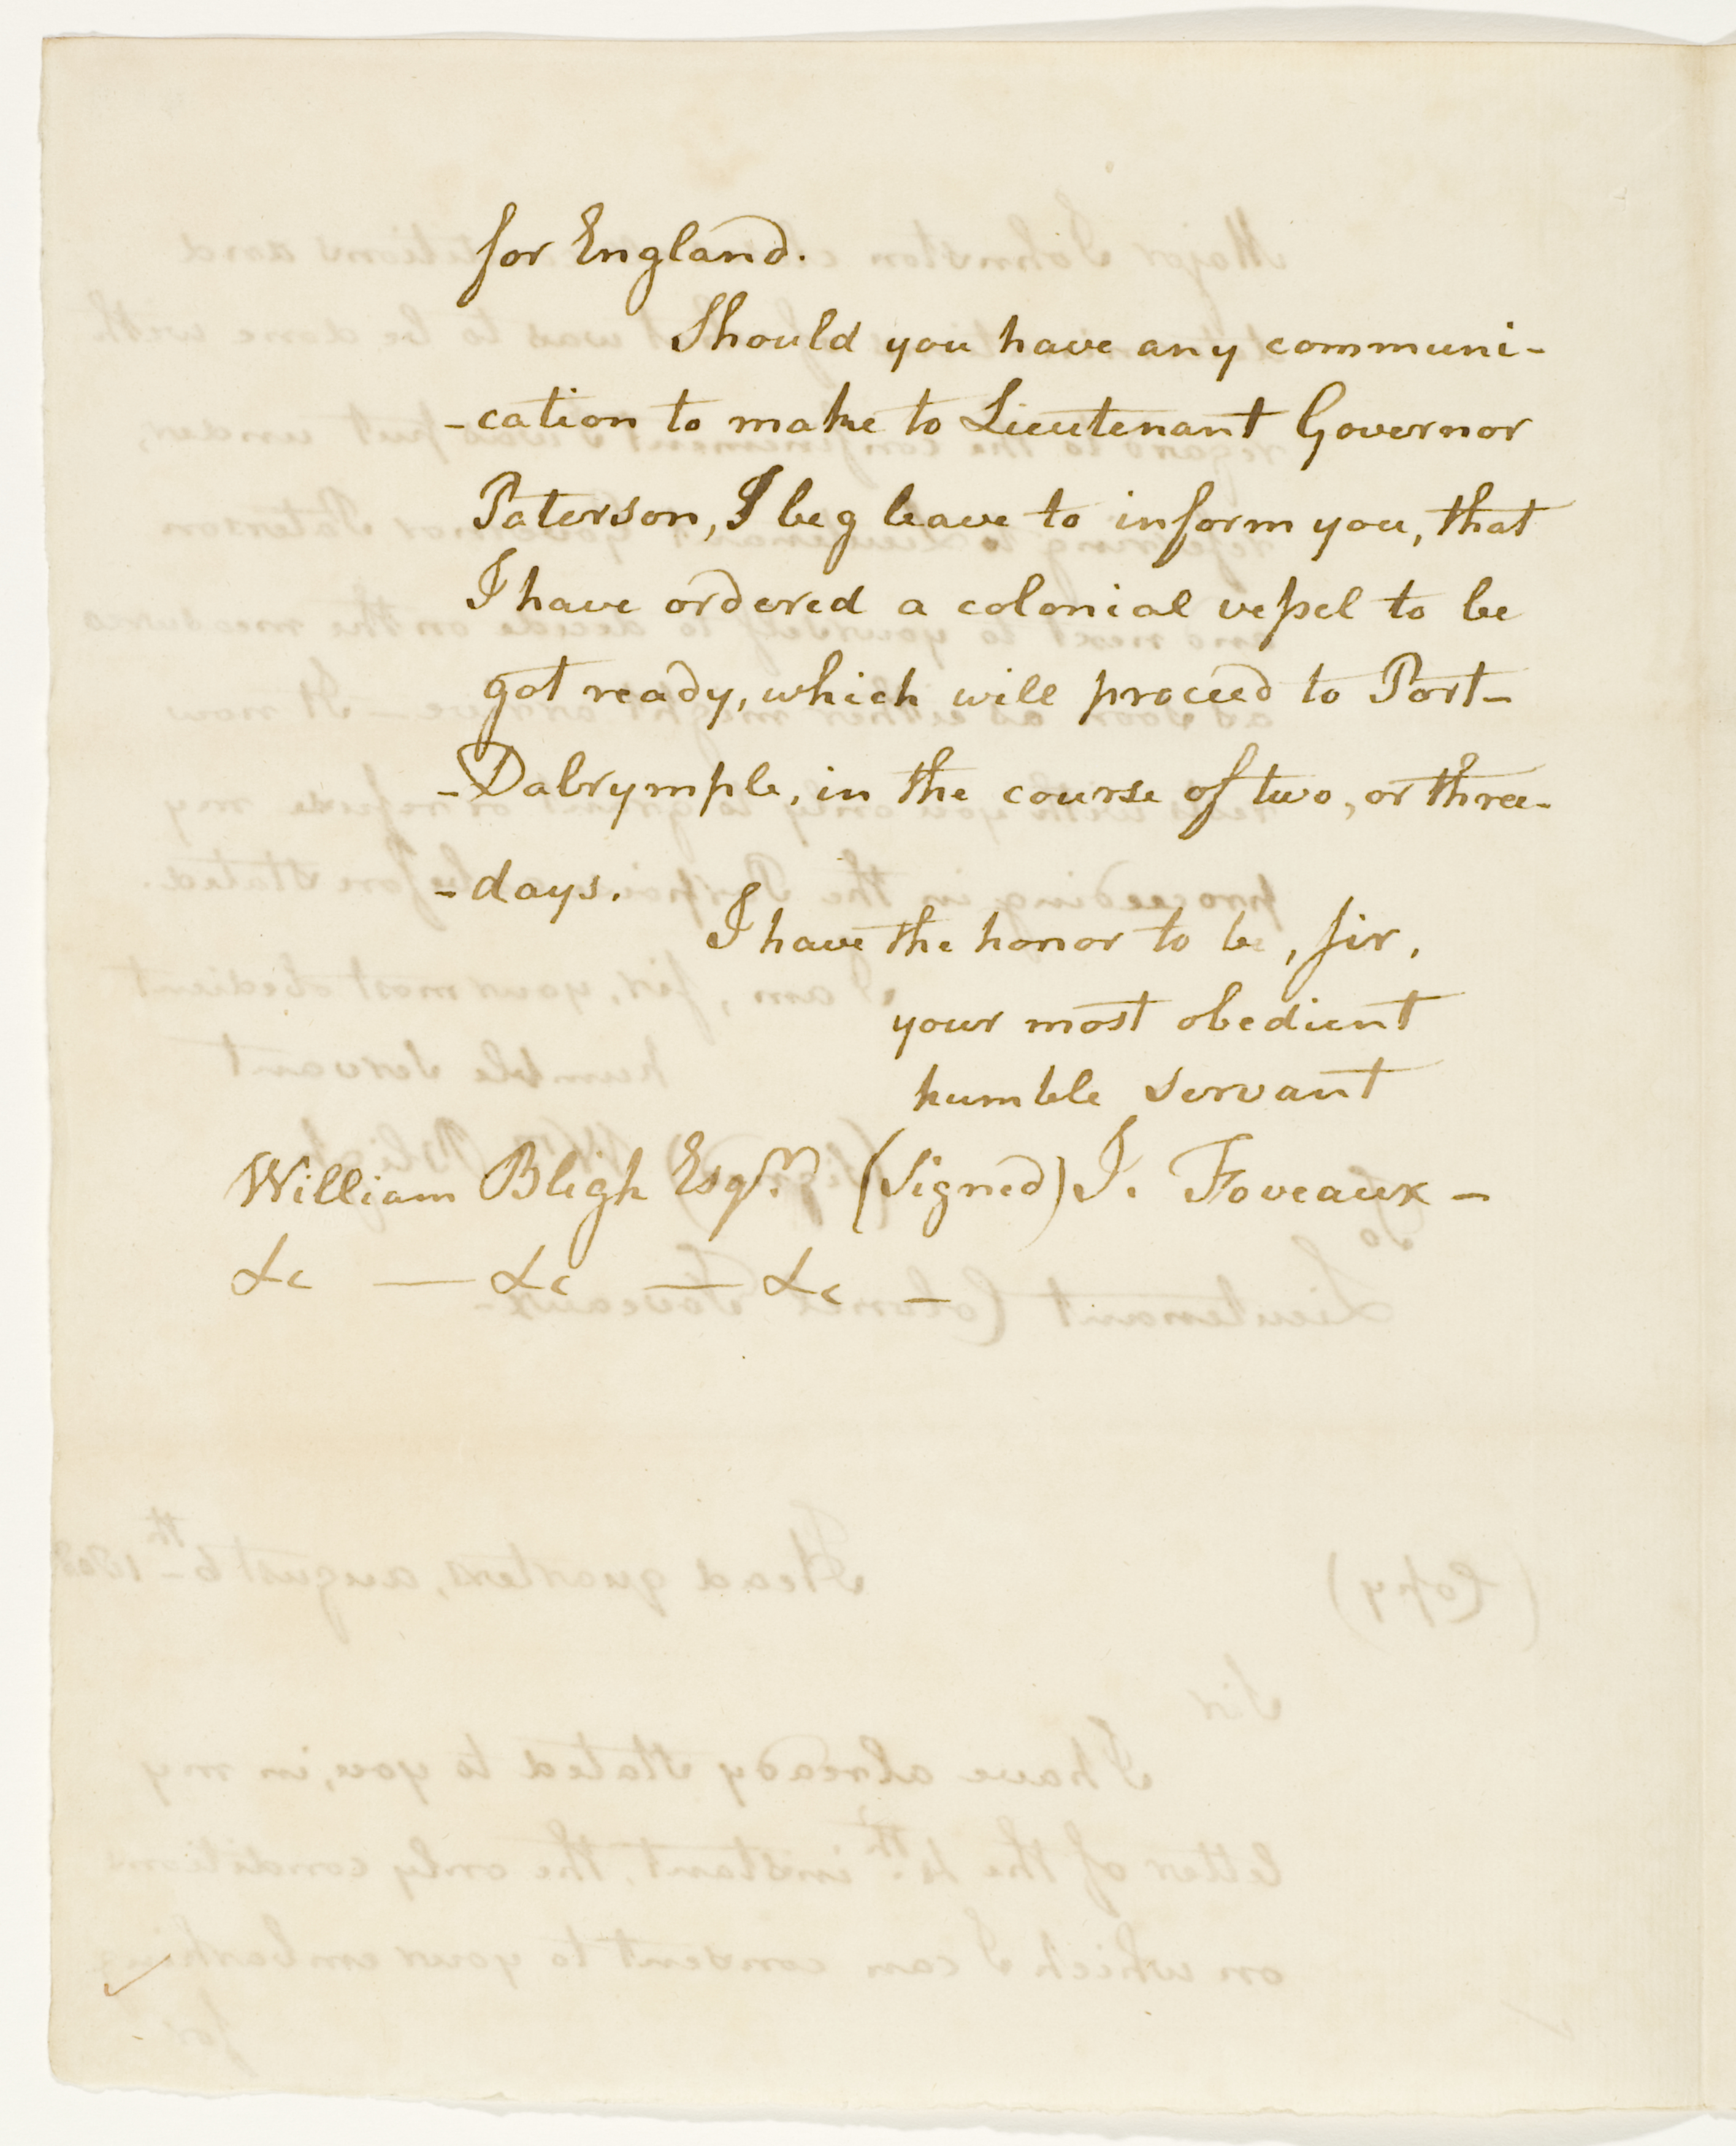 for England.
Should you have any communi-
-cation to make to Lieutenant Governor
Paterson, I beg leave to inform you, that
I have ordered a colonial vessel to be
got ready, which will proceed to Port-
-Dalrymple, in the course of two, or three-
-days.
I have the honor to be, Sir,
your most obedient
humble servant
William Bligh Esqr. (Signed) J. Foveaux -
&c — &c — &c -